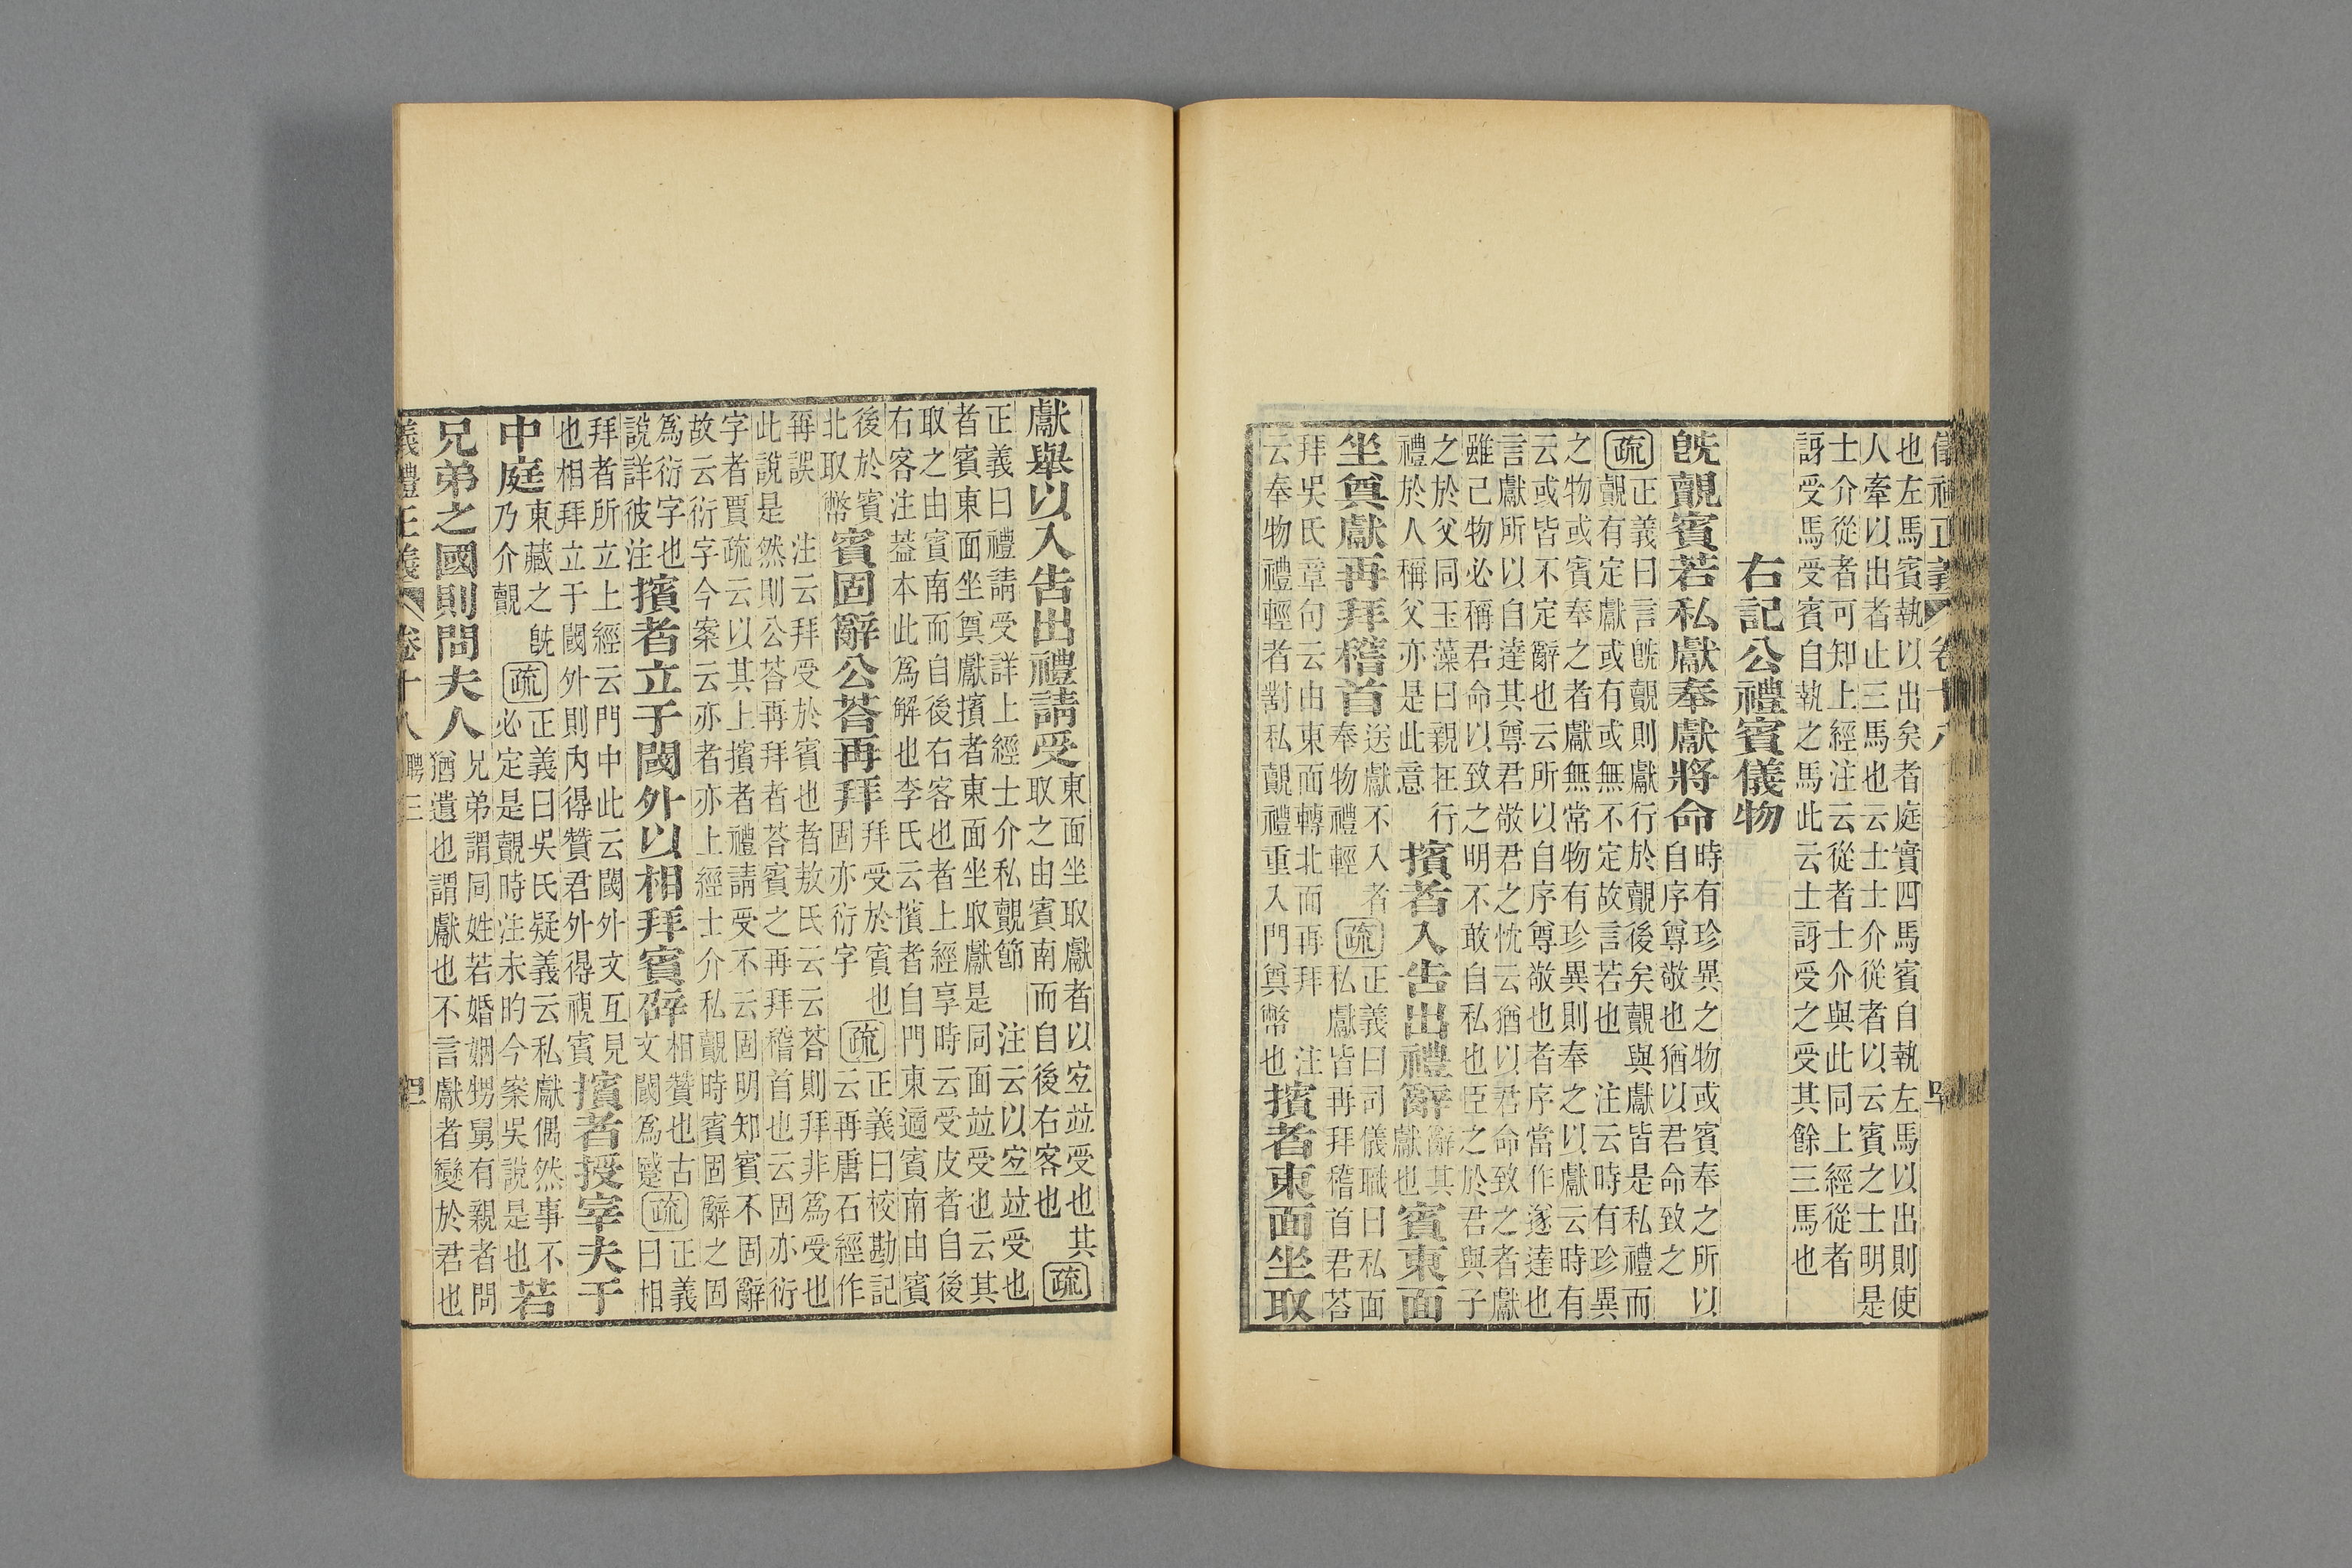 也左馬賓執以出矣者庭實四馬賓自執左馬以出則使
人牽以出者止三馬也云士士介從者以云賓之士明是
士介從者可知上經注云從者士介與此同上經從者
訝受馬受賓自執之馬此云士訝受之受其餘三馬也
右記公禮賓儀物
既覿賓若私獻奉獻將命
時有珍異之物或賓奉之所以
自序尊敬也猶以君命致之
疏
正義曰言既覿則獻行於覿後矣覿與獻皆是私禮而
覿有定獻或有或無不定故言若也 注云時有珍異
之物或賓奉之者獻無常物有珍異則奉之以獻云時有
云或皆不定辭也云所以自序尊敬也者序當作遂達也
言獻所以自達其尊君敬君之忱云猶以君命致之者獻
雖己物必稱君命以致之明不敢自私也臣之於君與子
之於父同玉藻曰親在行
禮於人稱父亦是此意
擯者入告出禮辭
辭其
獻也
賓東面
坐奠獻再拜稽首
送獻不入者
奉物禮輕
疏
正義曰司儀職曰私面
私獻皆再拜稽首君荅
拜吳氏章句云由東面轉北面再拜 注
云奉物禮輕者對私覿禮重入門奠幣也
擯者東面坐取
獻舉以入告出禮請受
東面坐取獻者以宐竝受也其
取之由賓南而自後右客也
疏
正義曰禮請受詳上經士介私覿節 注云以宐竝受也
者賓東面坐奠獻擯者東面坐取獻是同面竝受也云其
取之由賓南而自後右客也者上經享時云受皮者自後
右客注葢本此為解也李氏云擯者自門東適賓南由賓
後於賓
北取幣
賓固辭公荅再拜
拜受於賓也
固亦衍字
疏
正義曰校勘記
云再唐石經作
再誤 注云拜受於賓也者敖氏云云荅則拜非為受也
此說是然則公荅再拜者荅賓之再拜稽首也云固亦衍
字者賈疏云以其上擯者禮請受不云固明知賓不固辭
故云衍字今案云亦者亦上經士介私覿時賓固辭之固
為衍字也
說詳彼注
擯者立于閾外以相拜賓辟
相贊也古
文閾為蹙
疏
正義
曰相
拜者所立上經云門中此云閾外文互見
也相拜立于閾外則內得贊君外得視賓
擯者授宰夫于
中庭
東藏之既
乃介覿
疏
正義曰吳氏疑義云私獻偶然事不
必定是覿時注未的今案吳說是也
若
兄弟之國則問夫人
兄弟謂同姓若婚姻甥舅有親者問
猶遺也謂獻也不言獻者變於君也
儀禮正義 卷十八 聘三